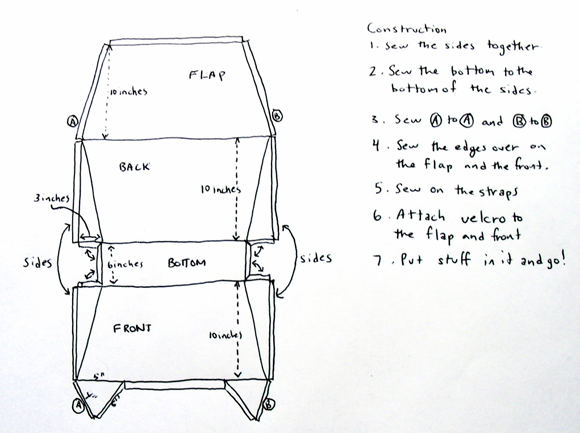 FLAP
10 inches
A
B
BACK
10 inches
3 inches
sides
6inches
BOTTOM
sides
FRONT
10 inches
5"
A
6"
B
Construction
1. Sew the sides together
2. Sew the bottom to the
bottom of the sides.
3. Sew A to A and B to B
4. Sew the edges over on
the flap and the front.
5. Sew on the straps
6. Attach velcro to
the flap and front
7. Put stuff in it and go!